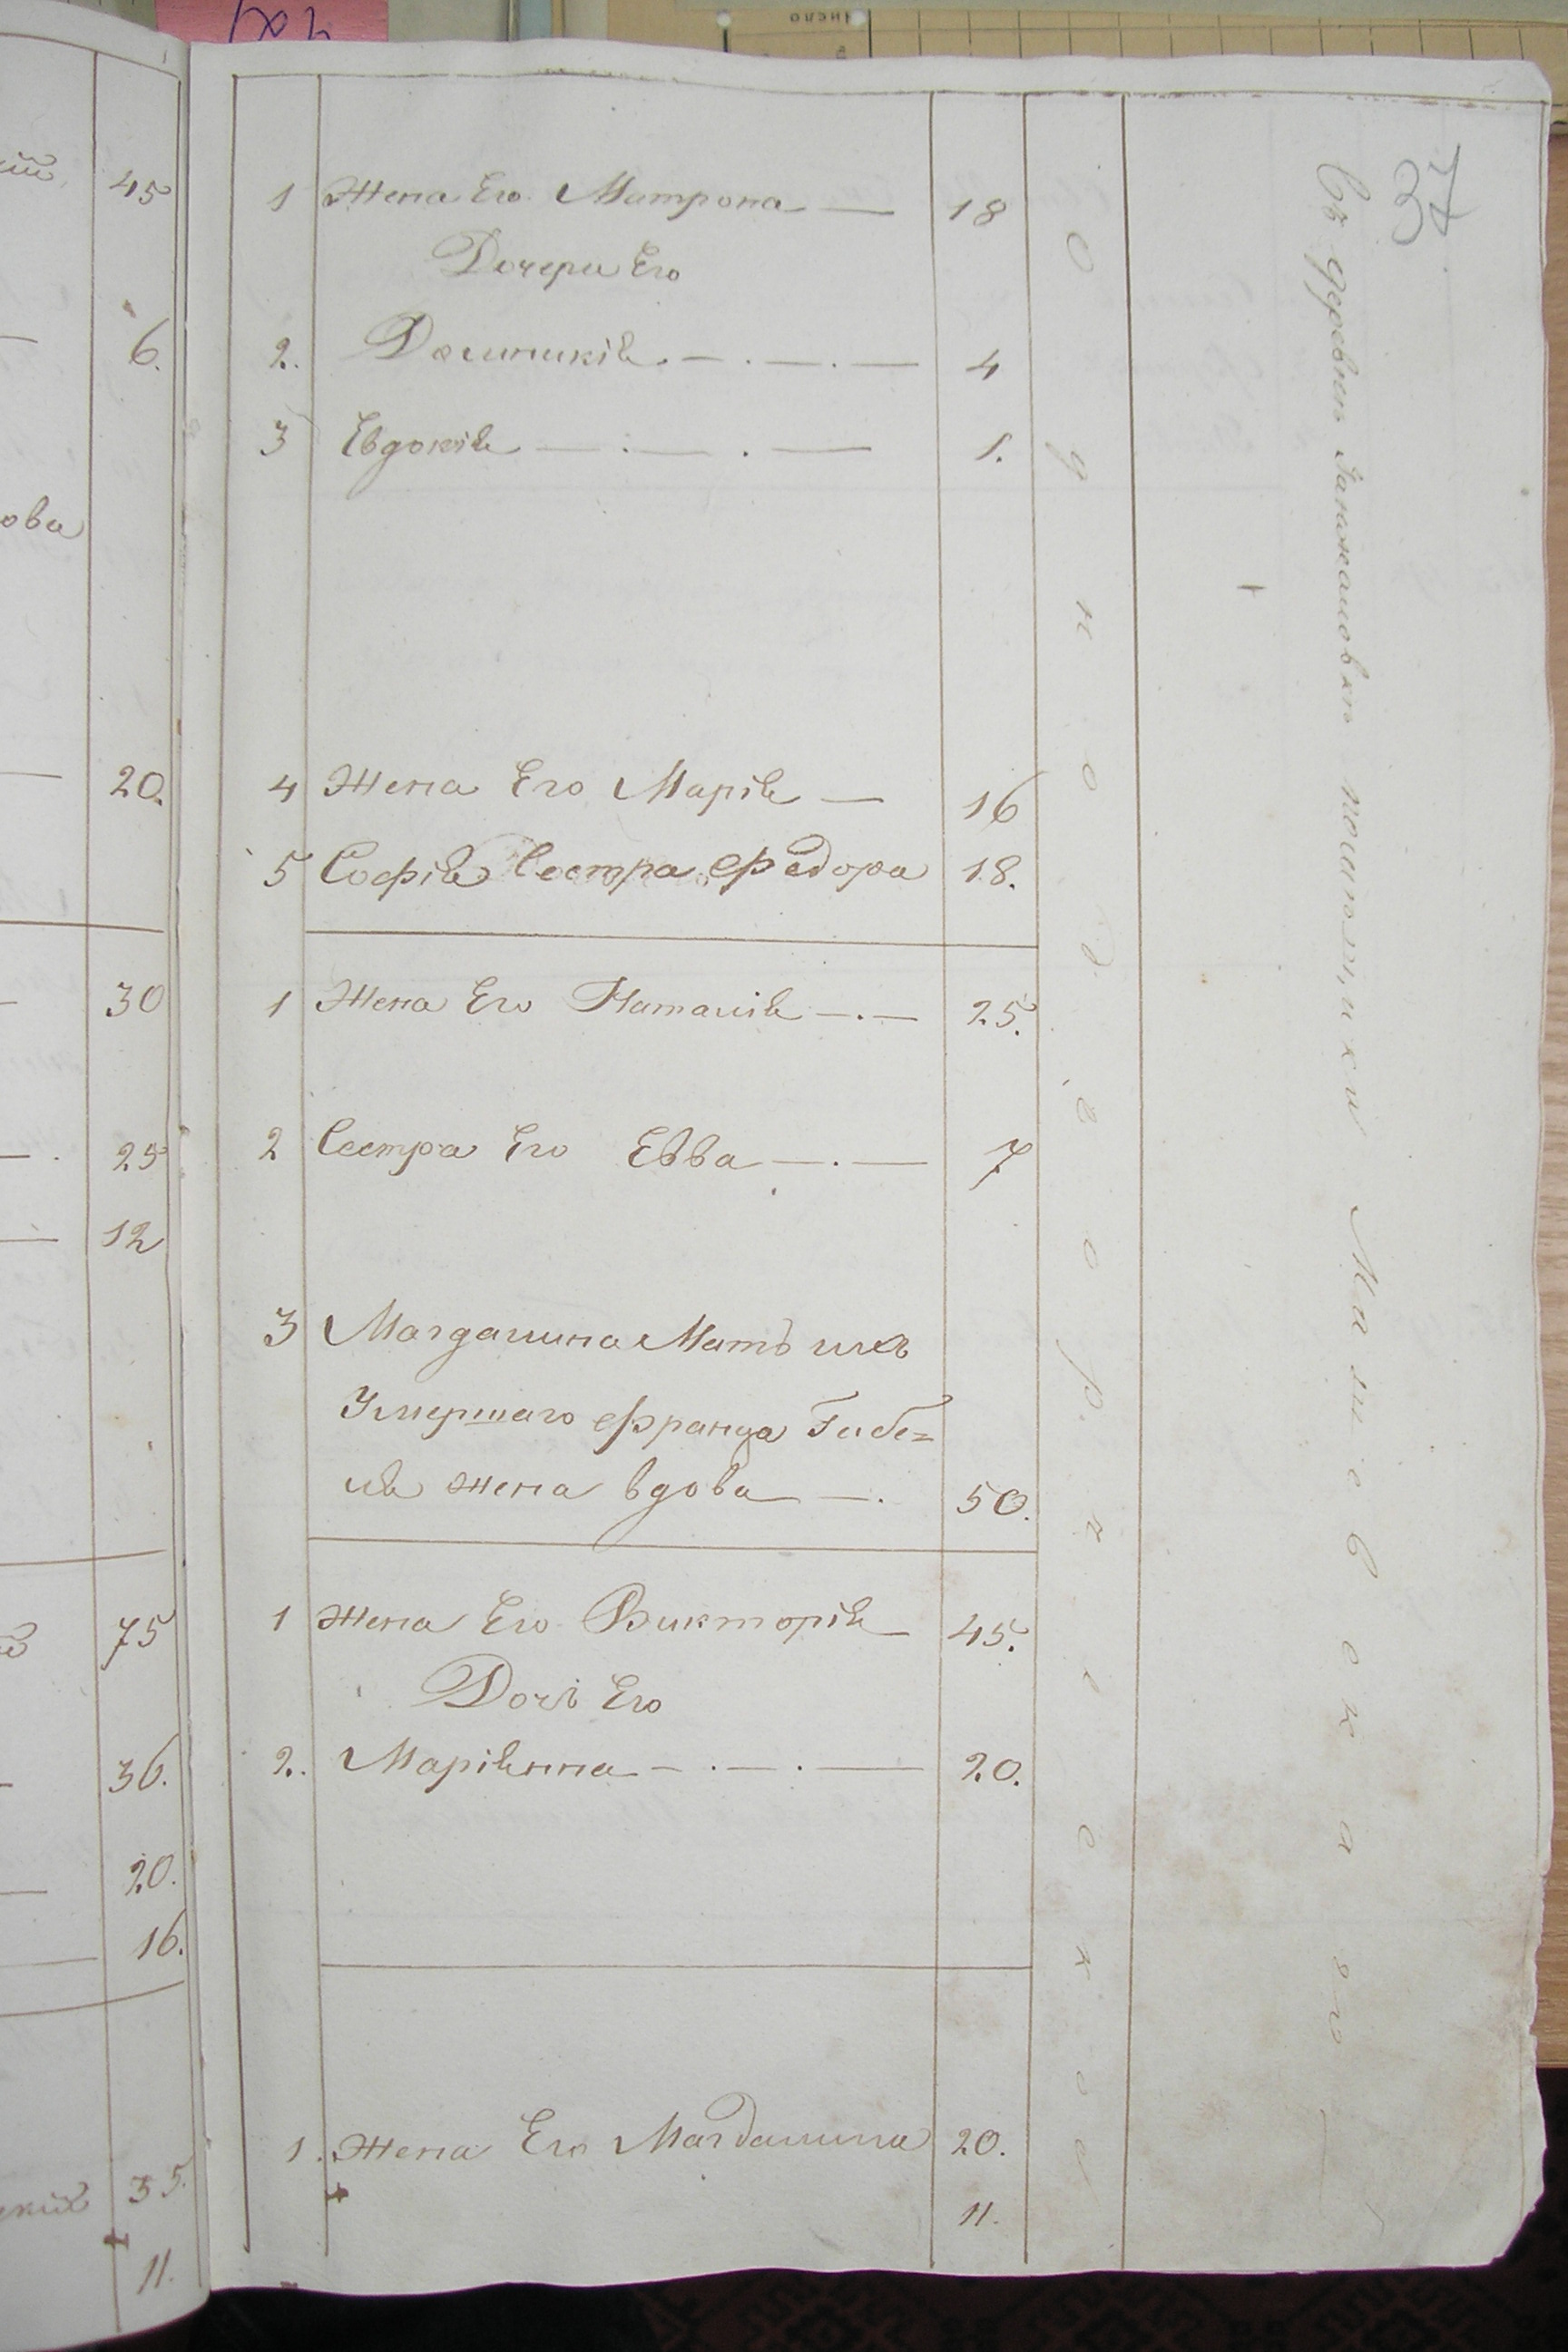 37
45
6.
ова
20.
30
25
12
75
36.
20.
16.
35.
11.
1 Жена Его Матрона — 18
Дочери Его
2. Доминикія — 4
3 Евдокія — 1.
4 Жена Его Марія — 16
5 Софія Сестра Федора 18.
1 Жена Его Наталія — 25.
2 Сестра Его Евва — 7
3 Магдалина Мать ихъ
Умершаго Франца Габе=
ля жена вдова — 50.
1 Жена Его Викторія 45.
Дочь Его
2. Маріянна — 20.
1. Жена Его Магдалина 20.
11.
Однодворческое
Въ деревнѣ помѣщика Машевскаго